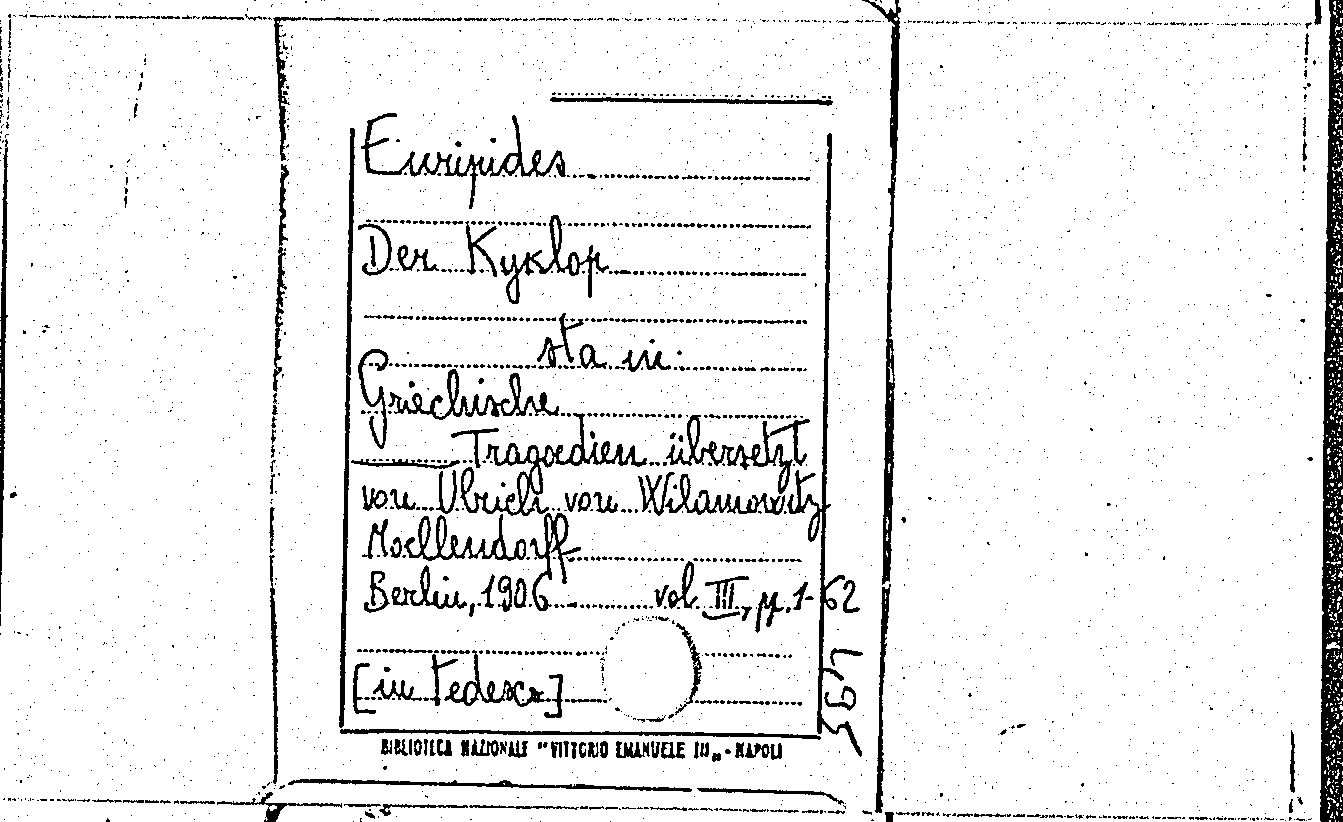 Euripides
Der Kyklop
sta in:
Griechische
Tragoedien übersetzt
von Ulrich von Wilamowitz
Moellendorff
Berlin, 1906 vol. III, pp. 1-62
[in tedesco]
BIBLIOTECA NAZIONALE "VITTORIO EMANUELE III„ - NAPOLI